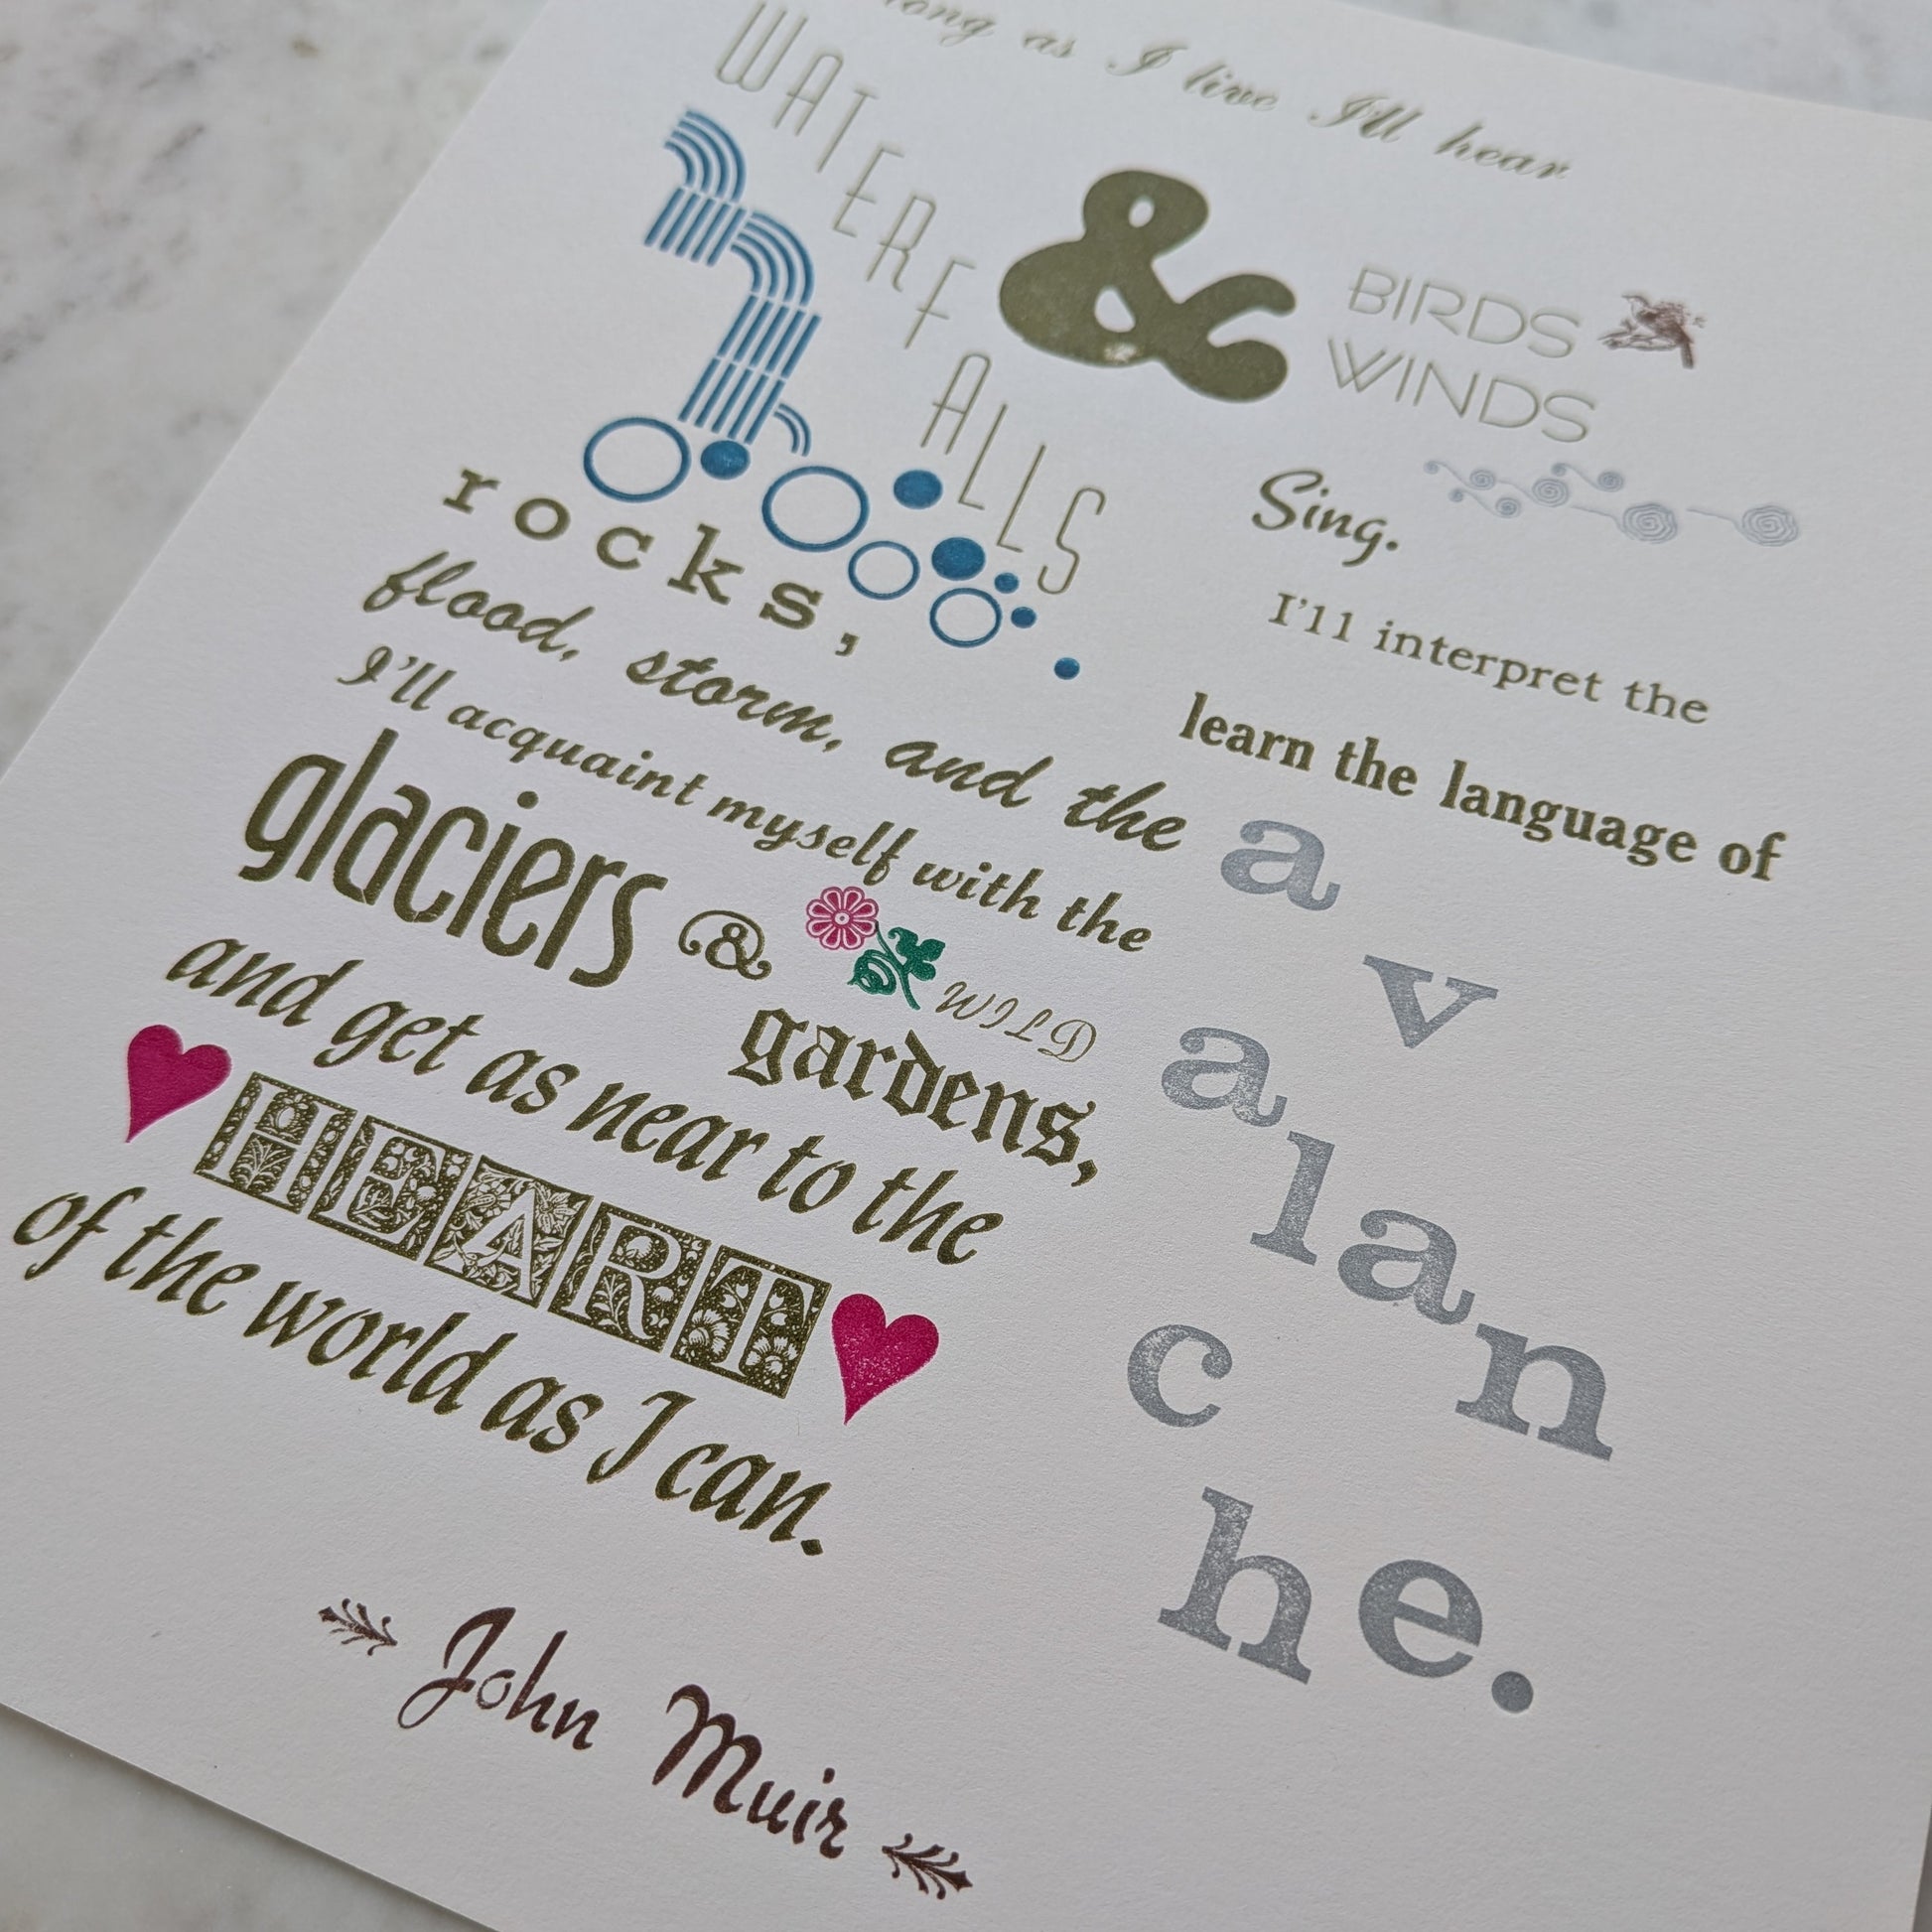 long as I live I'll hear
WATERFALLS & BIRDS
WINDS
Sing.
I'll interpret the
rocks,
learn the language of
flood, storm, and the
avalanche.
I'll acquaint myself with the
glaciers & WILD
gardens,
and get as near to the
HEART
of the world as I can.
John Muir